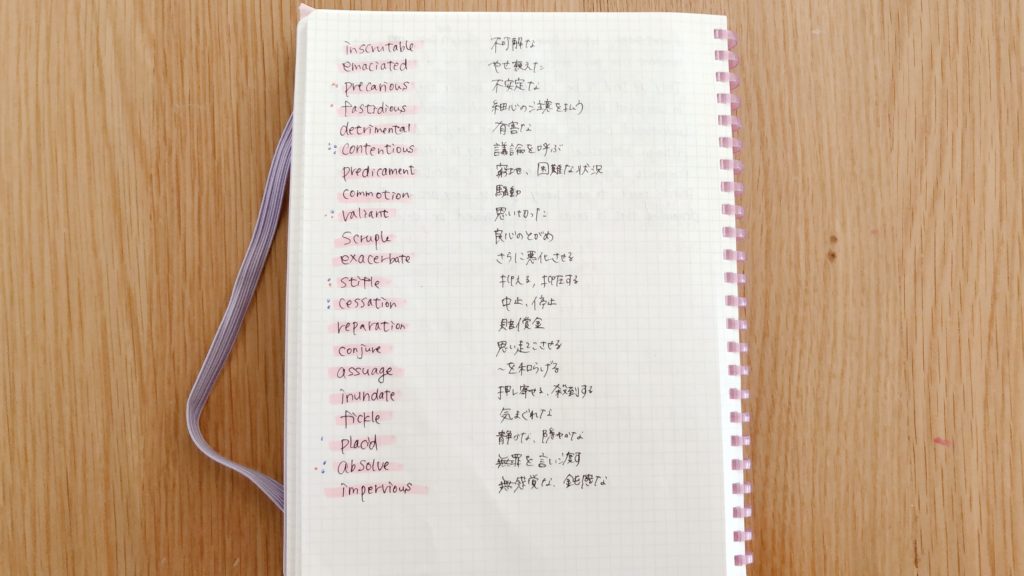 inscrutable 不可解な
emaciated やせ衰えた
precarious 不安定な
fastidious 細心の注意を払う
detrimental 有害な
contentious 議論を呼ぶ
predicament 窮地、困難な状況
commotion 騒動
valiant 思いきった
scruple 良心のとがめ
exacerbate さらに悪化させる
stifle 抑える, 抑圧する
cessation 中止、停止
reparation 賠償金
conjure 思い起こさせる
assuage ~を和らげる
inundate 押し寄せる、殺到する
fickle 気まぐれな
placid 静かな、穏やかな
absolve 無罪を言い渡す
impervious 無感覚な、鈍感な